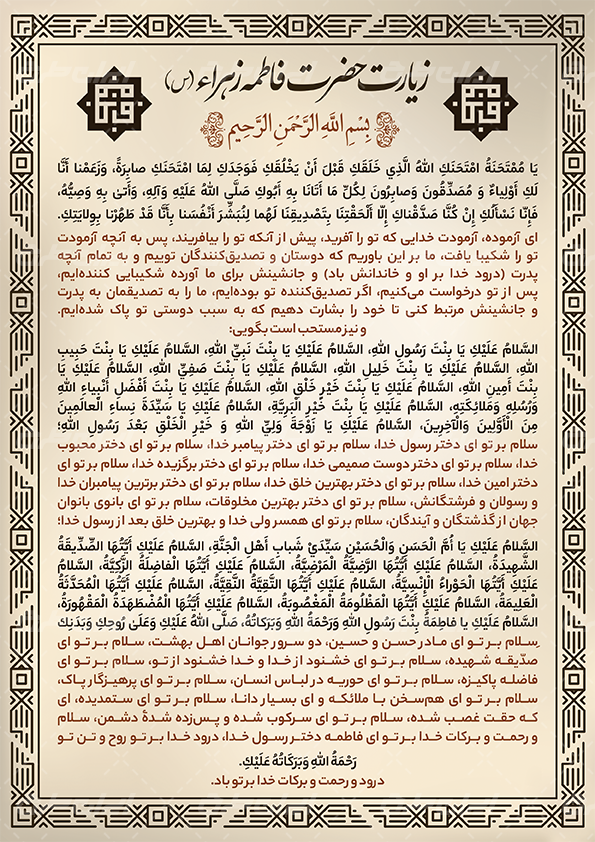 زیارت حضرت فاطمه زهراء (س)
بِسْمِ اللَّهِ الرَّحْمَنِ الرَّحِيمِ
يَا مُمْتَحَنَةُ امْتَحَنَكِ اللهُ الَّذِي خَلَقَكِ قَبْلَ أَنْ يَخْلُقَكِ فَوَجَدَكِ لِمَا امْتَحَنَكِ صابِرَةً، وَزَعَمْنا أَنَّا
لَكِ أَوْلِياءُ وَ مُصَدِّقُونَ وَصابِرُونَ لِكُلِّ مَا أَتَانَا بِهِ أَبُوكِ صَلَّى اللهُ عَلَيْهِ وَآلِهِ، وَأَتىٰ بِهِ وَصِيُّهُ،
فَإِنّا نَسْأَلُكِ إِنْ كُنَّا صَدَّقْناكِ إِلّا أَلْحَقْتِنَا بِتَصْدِيقِنَا لَهُما لِنُبَشِّرَ أَنْفُسَنا بِأَنَّا قَدْ طَهُرْنا بِوِلايَتِكِ.
ای آزموده، آزمودت خدایی که تو را آفرید، پیش از آنکه تو را بیافریند، پس به آنچه آزمودت
تو را شکیبا یافت، ما بر این باوریم که دوستان و تصدیق‌کنندگان توییم و به تمام آنچه
پدرت (درود خدا بر او و خاندانش باد) و جانشینش برای ما آورده شکیبایی کننده‌ایم،
پس از تو درخواست می‌کنیم، اگر تصدیق‌کننده تو بوده‌ایم، ما را به تصدیقمان به پدرت
و جانشینش مرتبط کنی تا خود را بشارت دهیم که به سبب دوستی تو پاک شده‌ایم.
و نیز مستحب است بگویی:
السَّلامُ عَلَيْكِ يَا بِنْتَ رَسُولِ اللهِ، السَّلامُ عَلَيْكِ يَا بِنْتَ نَبِيِّ اللهِ، السَّلامُ عَلَيْكِ يَا بِنْتَ حَبِيبِ
اللهِ، السَّلامُ عَلَيْكِ يَا بِنْتَ خَلِيلِ اللهِ، السَّلامُ عَلَيْكِ يَا بِنْتَ صَفِيِّ اللهِ، السَّلامُ عَلَيْكِ يَا
بِنْتَ أَمِينِ اللهِ، السَّلامُ عَلَيْكِ يَا بِنْتَ خَيْرِ خَلْقِ اللهِ، السَّلامُ عَلَيْكِ يَا بِنْتَ أَفْضَلِ أَنْبِياءِ اللهِ
وَرُسُلِهِ وَمَلائِكَتِهِ، السَّلامُ عَلَيْكِ يَا بِنْتَ خَيْرِ الْبَرِيَّةِ، السَّلامُ عَلَيْكِ يَا سَيِّدَةَ نِساءِ الْعالَمِينَ
مِنَ الْأَوَّلِينَ وَالْآخِرِينَ، السَّلامُ عَلَيْكِ يَا زَوْجَةَ وَلِيِّ اللهِ وَ خَيْرِ الْخَلْقِ بَعْدَ رَسُولِ اللهِ؛
سلام بر تو ای دختر رسول خدا، سلام بر تو ای دختر پیامبر خدا، سلام بر تو ای دختر محبوب
خدا، سلام بر تو ای دختر دوست صمیمی خدا، سلام بر تو ای دختر برگزیده خدا، سلام بر تو ای
دختر امین خدا، سلام بر تو ای دختر بهترین خلق خدا، سلام بر تو ای دختر برترین پیامبران خدا
و رسولان و فرشتگانش، سلام بر تو ای دختر بهترین مخلوقات، سلام بر تو ای بانوی بانوان
جهان از گذشتگان و آیندگان، سلام بر تو ای همسر ولی خدا و بهترین خلق بعد از رسول خدا؛
السَّلامُ عَلَيْكِ يَا أُمَّ الْحَسَنِ وَالْحُسَيْنِ سَيِّدَيْ شَبابِ أَهْلِ الْجَنَّةِ، السَّلامُ عَلَيْكِ أَيَّتُهَا الصِّدِّيقَةُ
الشَّهِيدَةُ، السَّلامُ عَلَيْكِ أَيَّتُهَا الرَّضِيَّةُ الْمَرْضِيَّةُ، السَّلامُ عَلَيْكِ أَيَّتُهَا الْفاضِلَةُ الزَّكِيَّةُ، السَّلامُ
عَلَيْكِ أَيَّتُهَا الْحَوْراءُ الْإِنْسِيَّةُ، السَّلامُ عَلَيْكِ أَيَّتُهَا التَّقِيَّةُ النَّقِيَّةُ، السَّلامُ عَلَيْكِ أَيَّتُهَا الْمُحَدَّثَةُ
الْعَلِيمَةُ، السَّلامُ عَلَيْكِ أَيَّتُهَا الْمَظْلُومَةُ الْمَغْصُوبَةُ، السَّلامُ عَلَيْكِ أَيَّتُهَا الْمُضْطَهَدَةُ الْمَقْهُورَةُ،
السَّلامُ عَلَيْكِ يا فاطِمَةُ بِنْتَ رَسُولِ اللهِ وَرَحْمَةُ اللهِ وَبَرَكاتُهُ، صَلَّى اللهُ عَلَيْكِ وَعَلَى رُوحِكِ وَبَدَنِكِ
سلام بر تو ای مادر حسن و حسین، دو سرور جوانان اهل بهشت، سلام بر تو ای
صدّیقه شهیده، سلام بر تو ای خشنود از خدا و خدا خشنود از تو، سلام بر تو ای
فاضله پاکیزه، سلام بر تو ای حوریه در لباس انسان، سلام بر تو ای پرهیزگار پاک،
سلام بر تو ای هم‌سخن با ملائکه و ای بسیار دانا، سلام بر تو ای ستمدیده، ای
که حقت غصب شده، سلام بر تو ای سرکوب شده و پس‌زده شدهٔ دشمن، سلام
و رحمت و برکات خدا بر تو ای فاطمه دختر رسول خدا، درود خدا بر تو روح و تن تو
رَحْمَةُ اللهِ وَبَرَكَاتُهُ عَلَيْكِ.
درود و رحمت و برکات خدا بر تو باد.